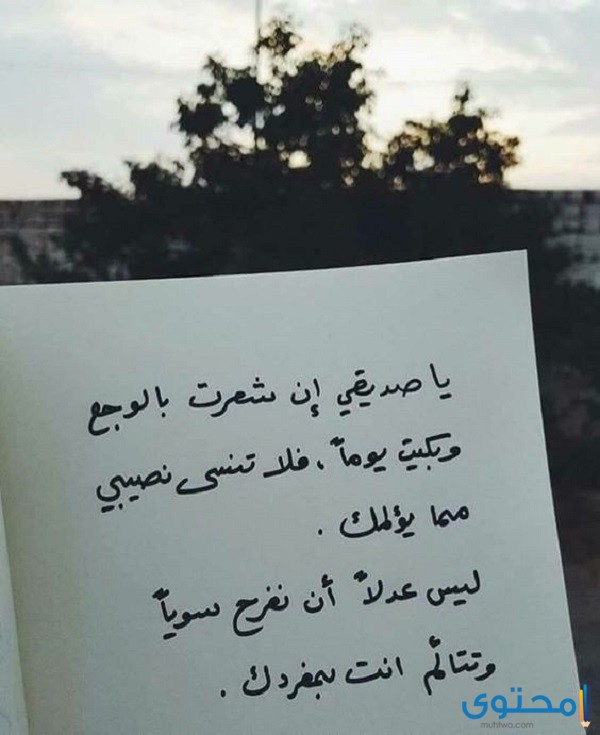 يا صديقي إن شعرت بالوجع
وبكيت يوماً، فلا تنسى نصيبي
مما يؤلمك .
ليس عدلاً أن نفرح سوياً
وتتألّم انت بمفردك .
محتوى
muhtwa.com